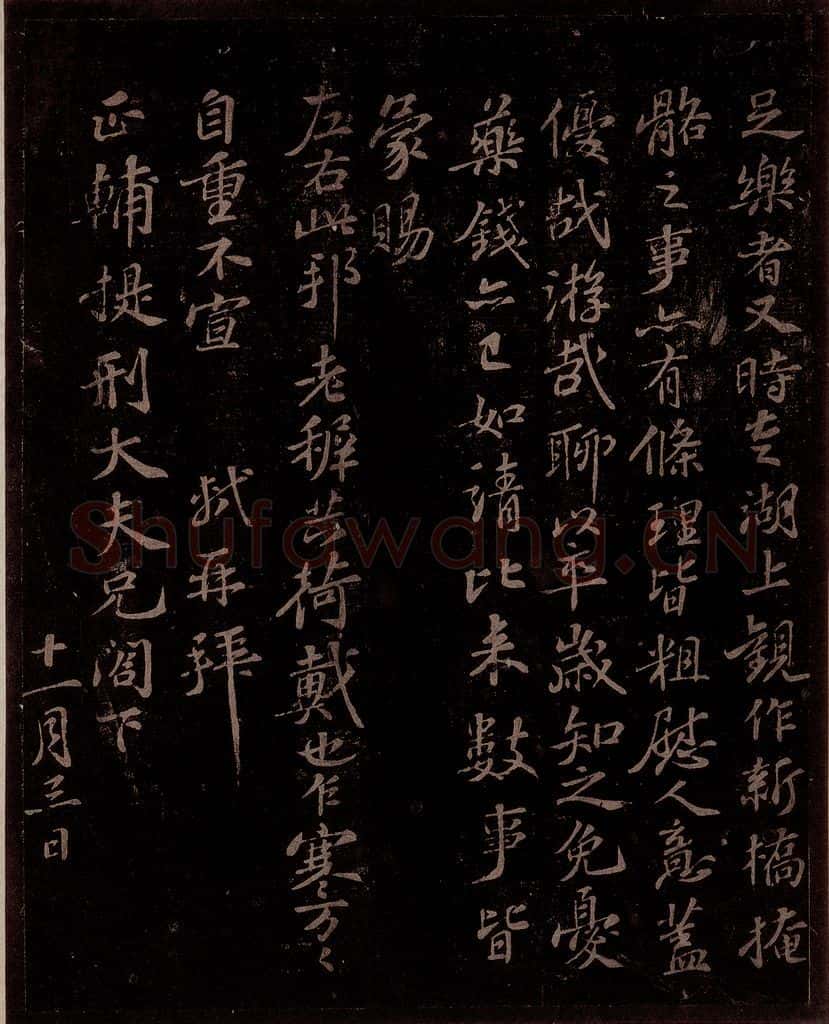 足樂者又時走湖上觀作新橋掩
骼之事亦有條理皆粗慰人意蓋
優哉游哉聊以卒歲知之免憂
藥錢亦已如請比來數事皆
蒙賜
左右此邦老穉共荷戴也乍寒萬萬
自重不宣 軾再拜
正輔提刑大夫兄閤下
十一月三日
Shufawang.CN